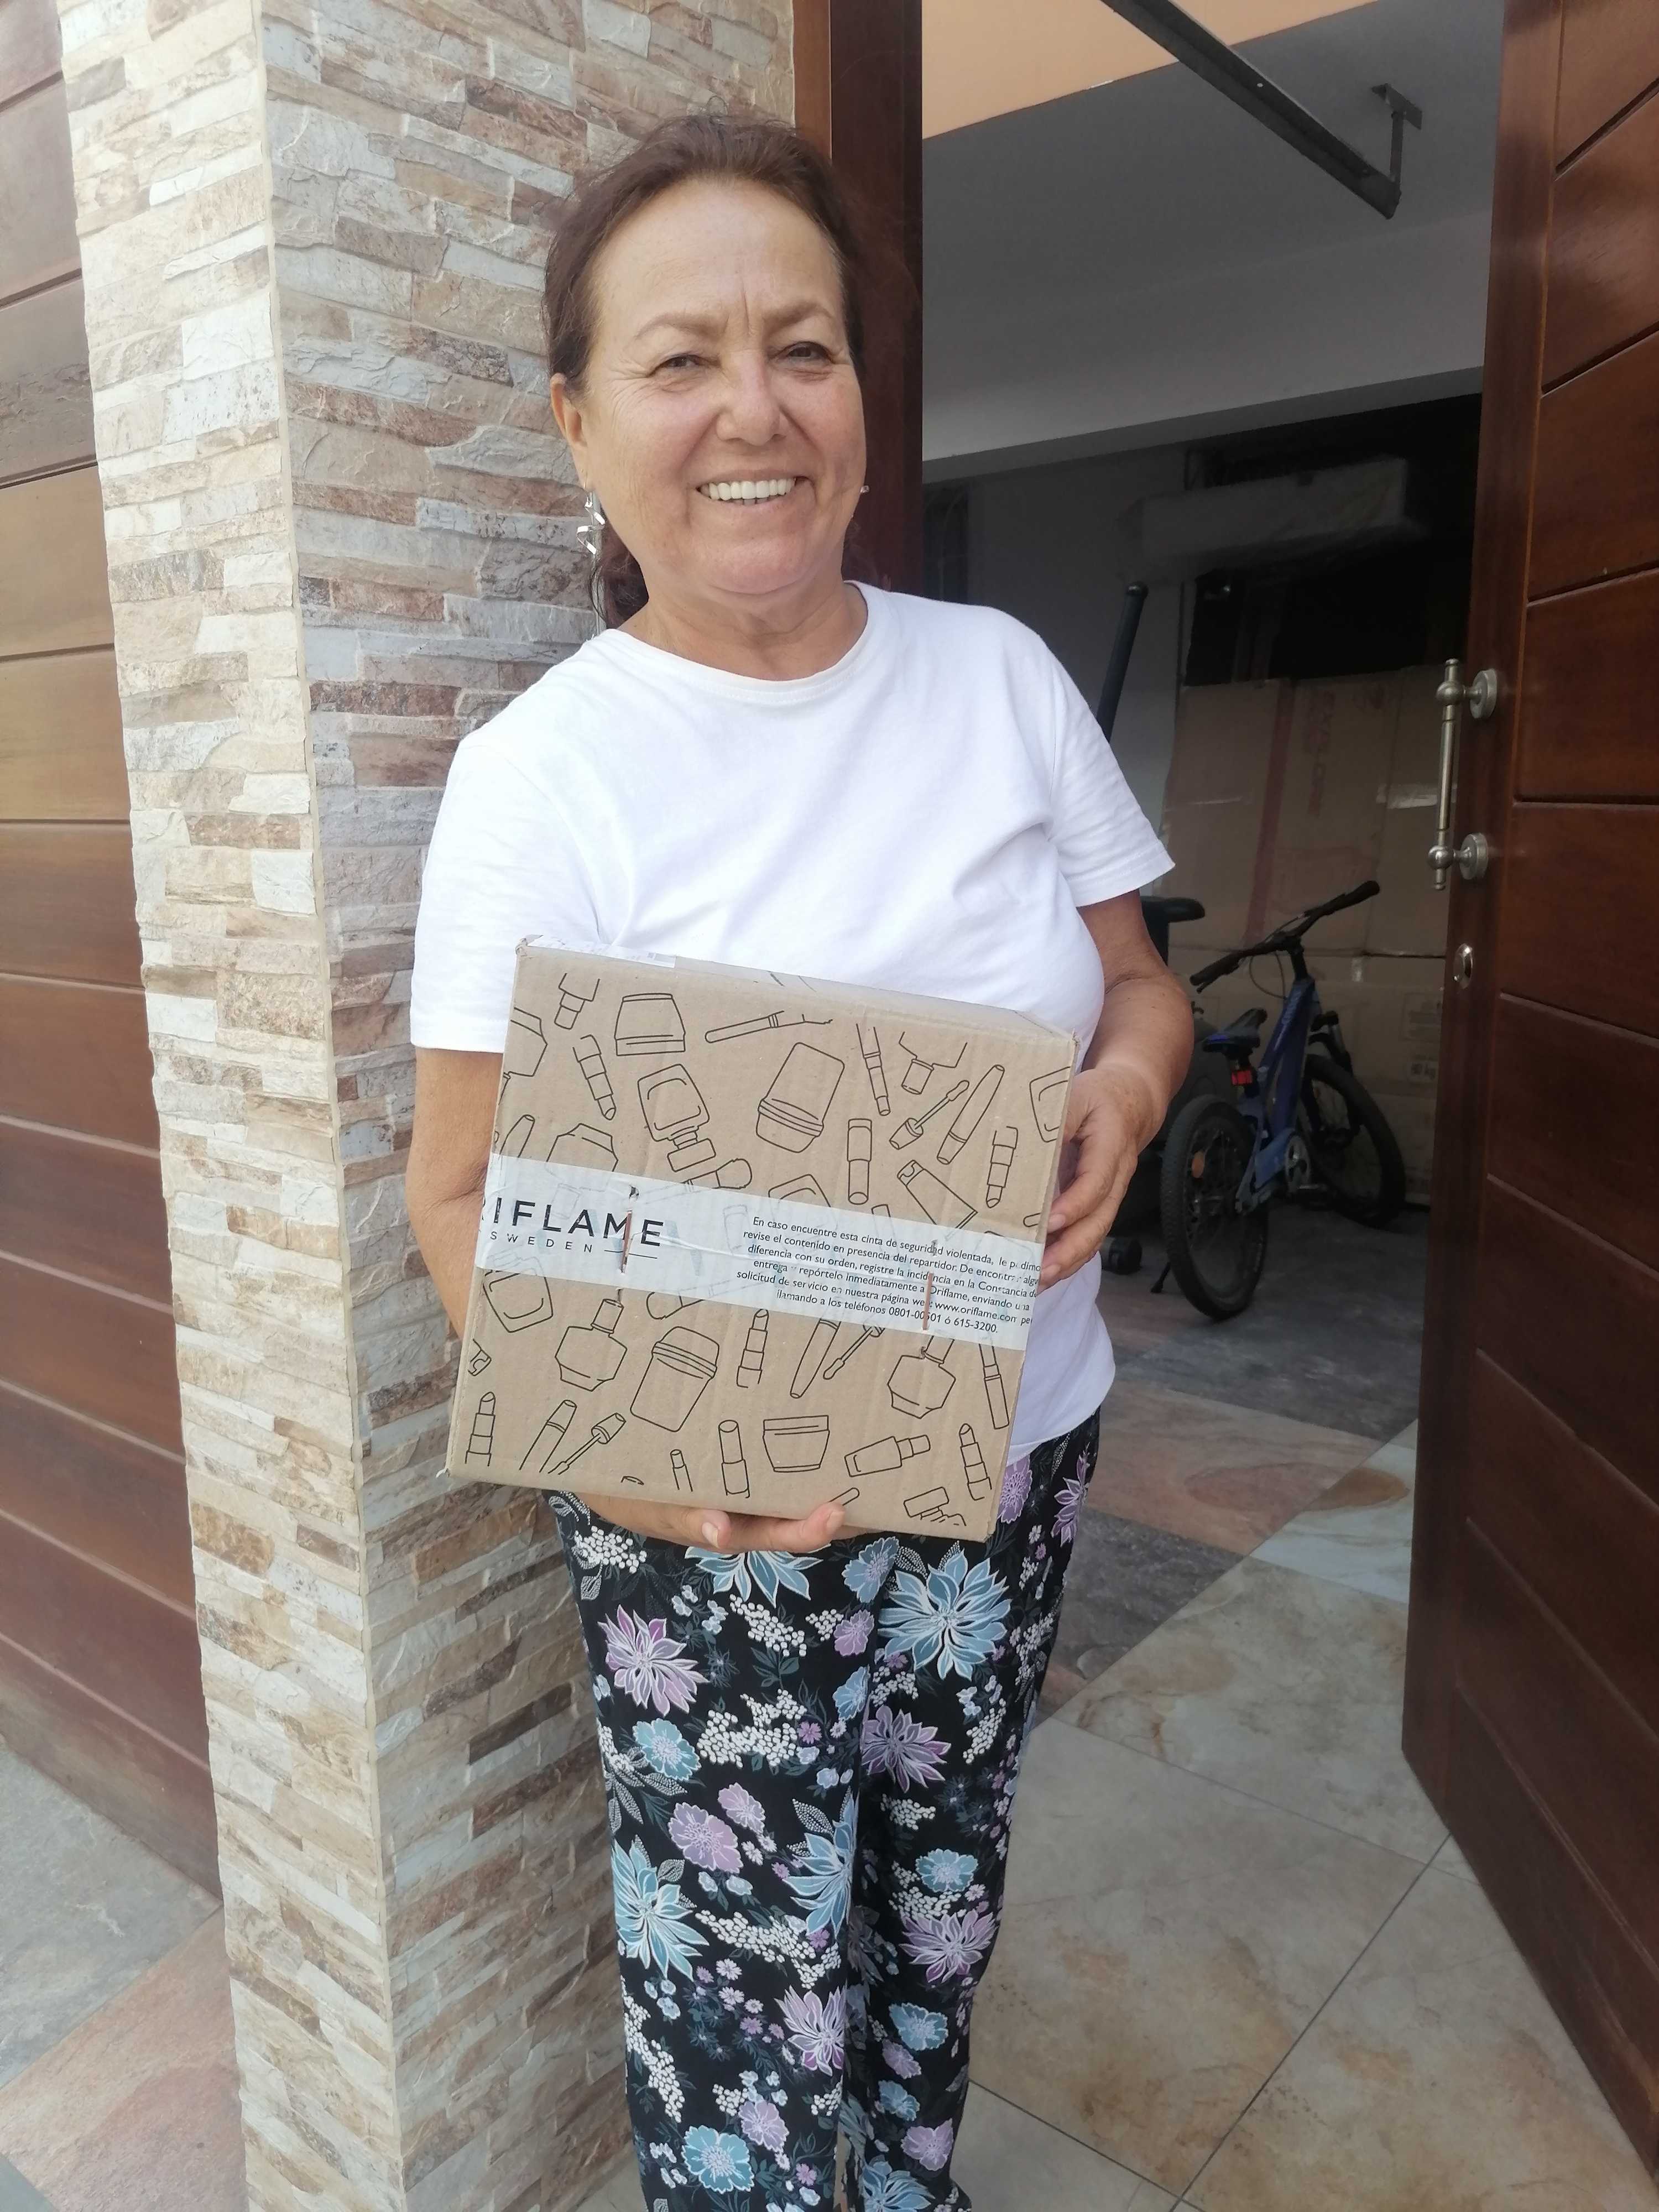 RIFLAME
SWEDEN
En caso encuentre esta cinta de seguridad violentada, le pedimo
revise el contenido en presencia del repartidor. De encontrar algu
diferencia con su orden, registre la incidencia en la Constancia de
entrega repórtelo inmediatamente a Oriflame, enviando una
solicitud de servicio en nuestra página web www.oriflame.com pe
llamando a los teléfonos 0801-00501 ó 615-3200.